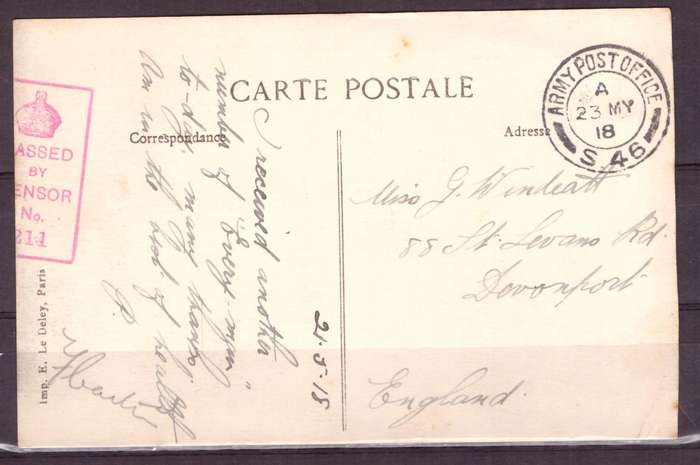 CARTE POSTALE
Correspondance
Adresse
ARMY POST OFFICE
A
23 MY
18
S. 46
ASSED
BY
ENSOR
No.
211
I received another
number of "Every-man"
to-day, many thanks.
Am in the best of health
P.
21·5·18
Miss G. Windeatt
88 St. Levans Rd.
Devonport
England.
imp. E. Le Deley, Paris